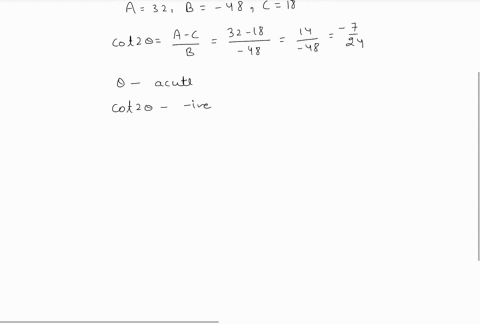 A = 32, B = -48, C = 18
cot2θ = A-C/B = 32-18/-48 = 14/-48 = -7/24
θ - acute
cot2θ - -ive